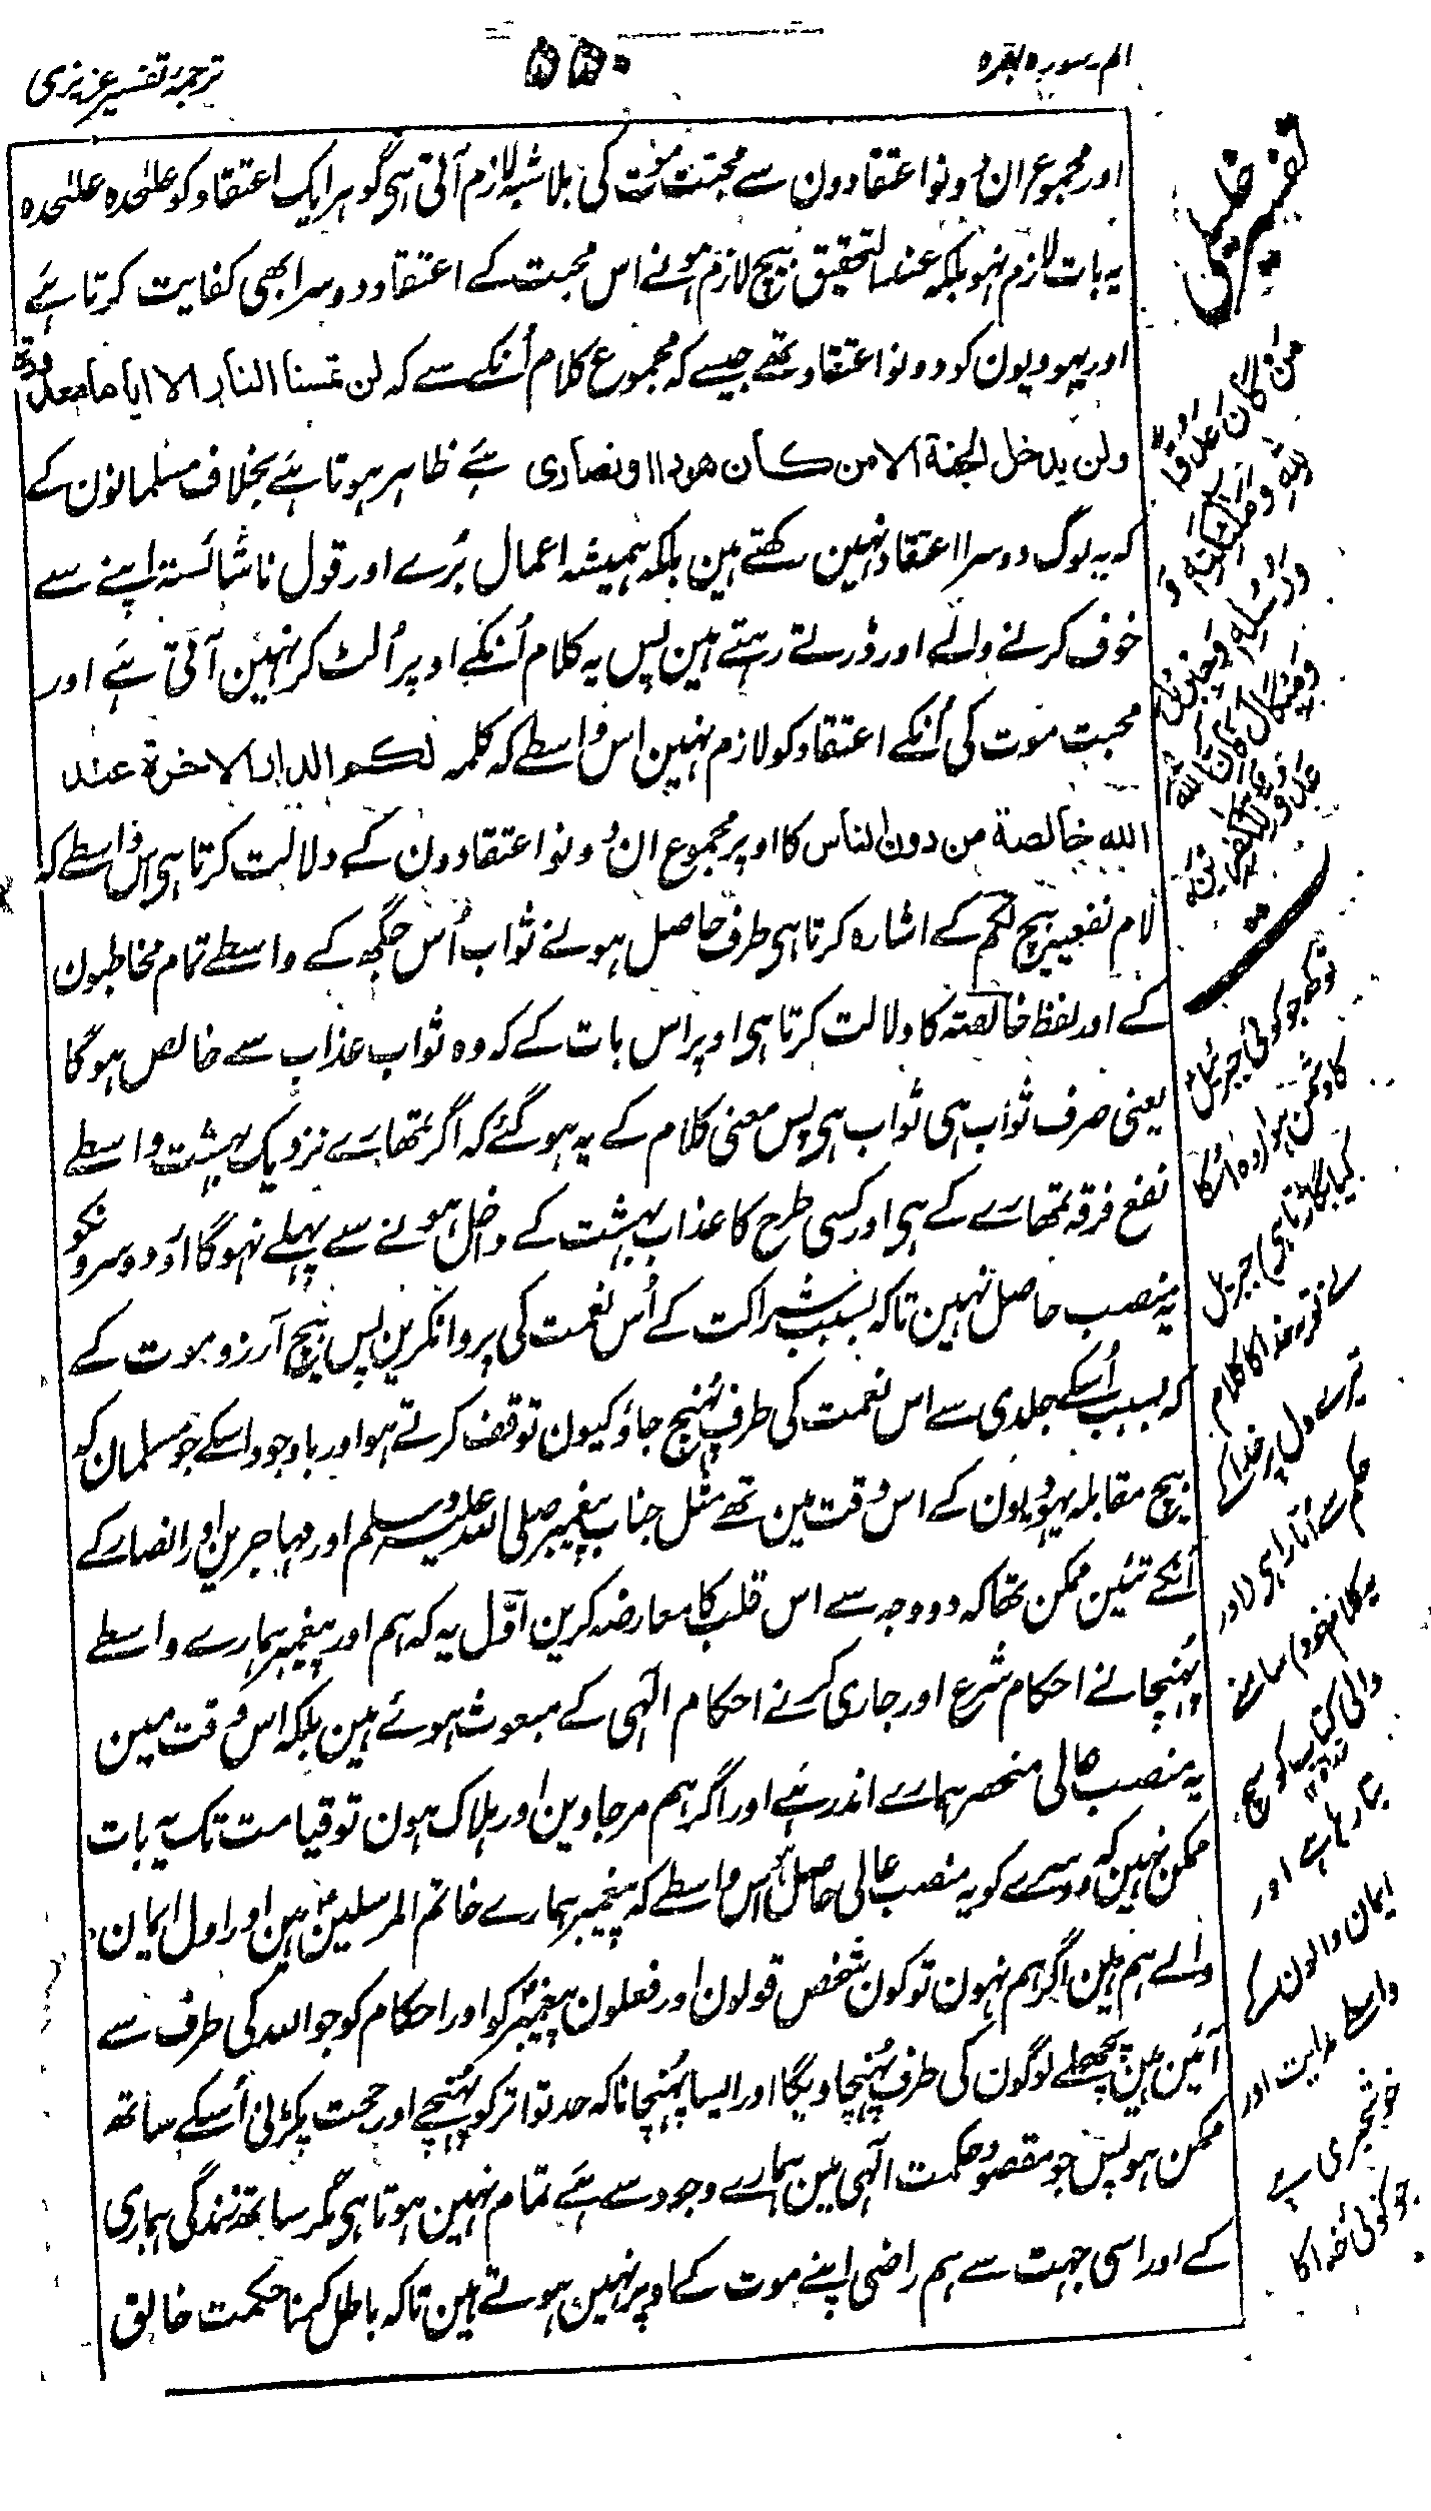 الم۔سورہ بقرہ
۵۵۰
ترجمۂ تفسیر عزیزی
اور مجموع ان دونو اعتقادون سے محبت موت کی بلا شبہہ لازم آتی ہی گو ہر ایک اعتقاد کو علٰحدہ علٰحدہ
یہ بات لازم نہو بلکہ عند التحقیق بیچ لازم ہونے اس محبت کے اعتقاد دوسرا بھی کفایت کرتا ہئے
اور یہودیون کو دونو اعتقاد تھے جیسے کہ مجموع کلام اُنکے سے کہ لن تمسنا النار الا ایاما معدودۃ
ولن یدخل الجنۃ الا من کان ھودا او نصاری ہئے ظاہر ہوتا ہئے بخلاف مسلمانون کے
کہ یہ لوگ دوسرا اعتقاد نہین رکھتے ہین بلکہ ہمیشہ اعمال بُرے اور قول ناشائستہ اپنے سے
خوف کرنے والے اور ڈرتے رہتے ہین پس یہ کلام اُنکے اوپر اُلٹ کر نہین آتی ہئے اور
محبت موت کی اُنکے اعتقاد کو لازم نہین اس واسطے کہ کلمہ لکم الدار الاخرۃ عند
اللہ خالصۃ من دون الناس کا اوپر مجموع ان دونو اعتقادون کے دلالت کرتا ہی اس واسطے کہ
لام نفعیہ بیچ لکم کے اشارہ کرتا ہی طرف حاصل ہونے ثواب اُس جگہ کے واسطے تمام مخاطبون
کے اور لفظ خالصۃ کا دلالت کرتا ہی اوپر اس بات کے کہ وہ ثواب عذاب سے خالص ہوگا
یعنی صرف ثواب ہی ثواب ہی پس معنی کلام کے یہ ہوگئے کہ اگر تمھارے نزدیک بہشت واسطے
نفع فرقہ تمھارے کے ہی اور کسی طرح کا عذاب بہشت کے داخل ہونے سے پہلے نہوگا اور دوسرونکو
یہ منصب حاصل نہین تاکہ بسبب شراکت کے اُس نعمت کی پروا نکرین پس بیچ آرزو موت کے
کہ بسبب اُسکے جلدی سے اس نعمت کی طرف پہنچ جاؤ کیون توقف کرتے ہو اور باوجود اسکے جو مسلمان کہ
بیچ مقابلہ یہودیون کے اس وقت مین تھے مثل جناب پیغمبر صلی اللہ علیہ وسلم اور مہاجرین اور انصار کے
اُنکے تئین ممکن تھا کہ دو وجہ سے اس قلب کا معارضہ کرین اوّل یہ کہ ہم اور پیغمبر ہمارے واسطے
پُہنچانے احکام شرع اور جاری کرنے احکام الٰہی کے مبعوث ہوئے ہین بلکہ اس وقت مین
یہ منصب عالی منحصر ہمارے اندر ہئے اور اگر ہم مرجاوین اور ہلاک ہون تو قیامت تک یہ بات
ممکن نہین کہ دوسرے کو یہ منصب عالی حاصل ہو اس واسطے کہ پیغمبر ہمارے خاتم المرسلین ہین اور اول ایمان
والے ہم ہین اگر ہم نہون تو کون شخص قولون اور فعلون پیغمبر کو اور احکام کو جو اللہ کی طرف سے
آئین ہین پچھلے لوگون کی طرف پُہنچاویگا اور ایسا پُہنچانا کہ حد تواتر کو پُہنچے اور حجت پکڑنی اُسکے ساتھ
ممکن ہو پس جو مقصود حکمت الٰہی مین ہمارے وجود سے ہئے تمام نہین ہوتا ہی مگر ساتھ زندگی ہماری
کے اور اسی جہت سے ہم راضی اپنے موت کے اوپر نہین ہوتے ہین تاکہ باطل کرنا حکمت خالق
من کان عدوا
للہ وملئکتہ
ورسلہ وجبریل
ومیکال فان اللہ
عدو للکفرین
جو کوئی جبریل
کا دشمن ہو
جبریل
نے تو خدا کا کلام
تیرے دل پر خدا کے
حکم سے اتارا ہی اور
والی کتاب کو سچ
بتا رہا ہے اور
ایمان والون کے
واسطے ہدایت اور
خوشخبری ہے
جو کوئی خدا کا